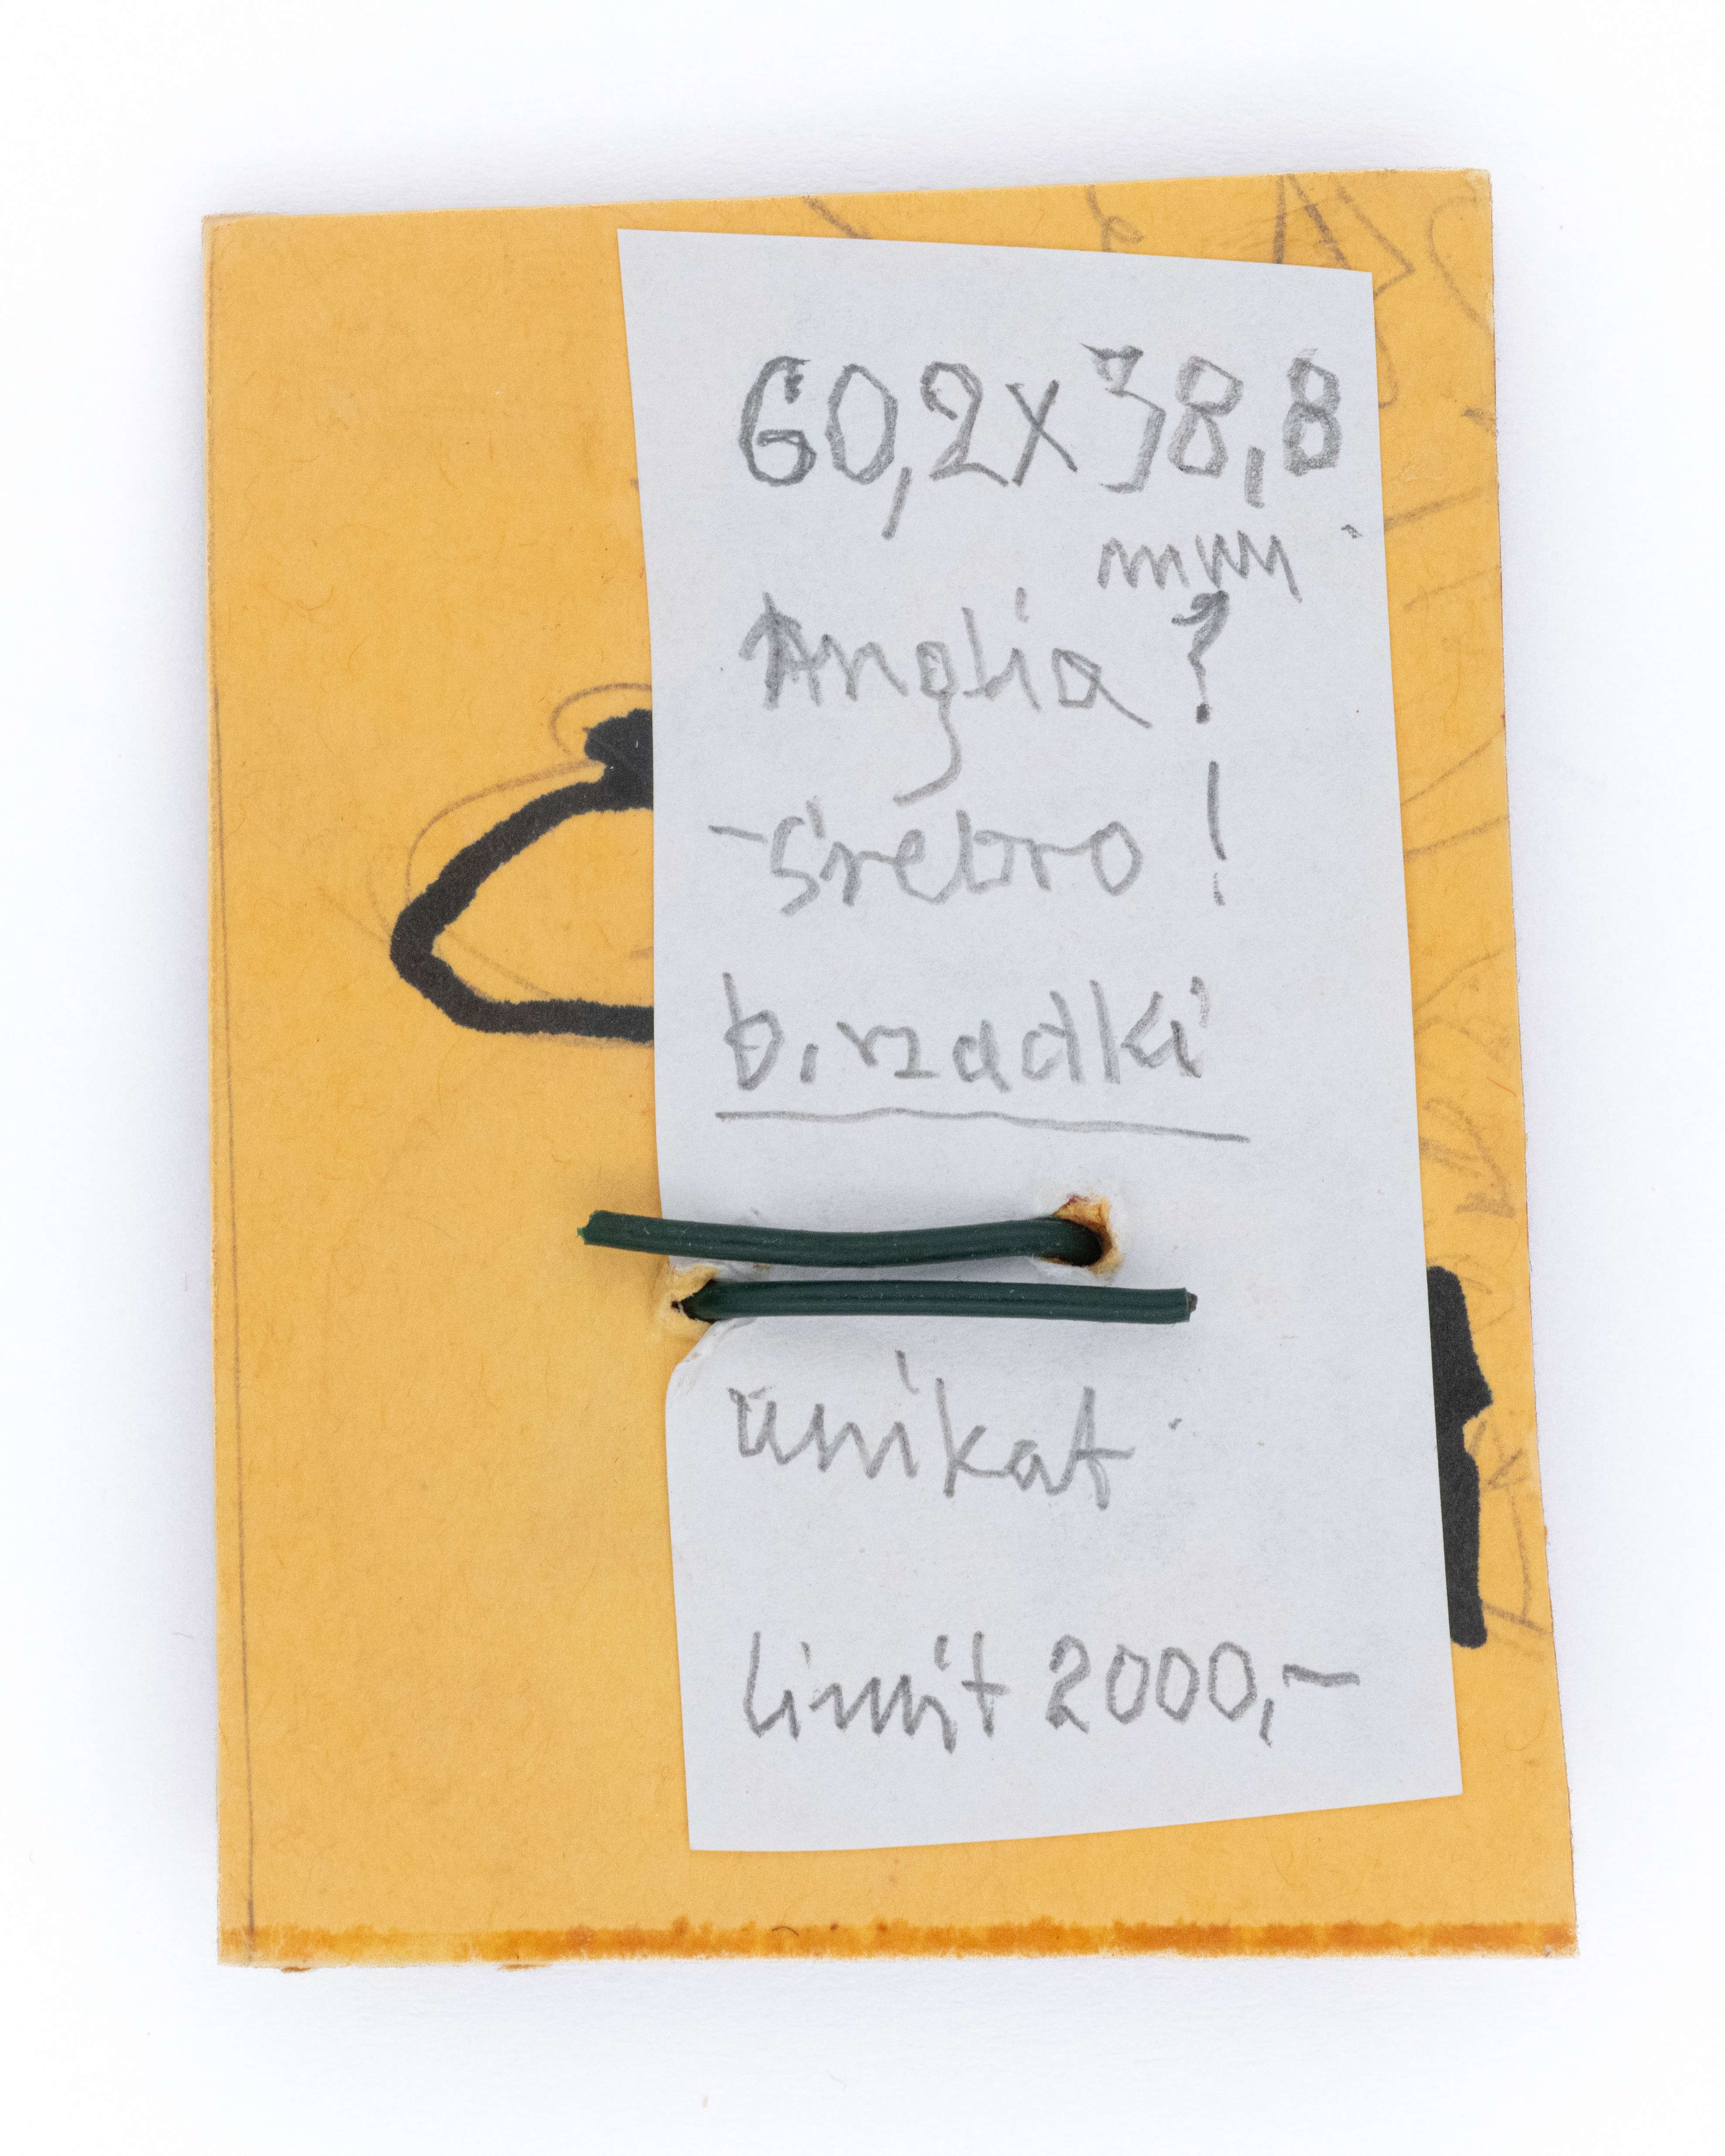 60,2x38,8
mm
Anglia ?
-srebro !
b. rzadki
unikat
limit 2000,-